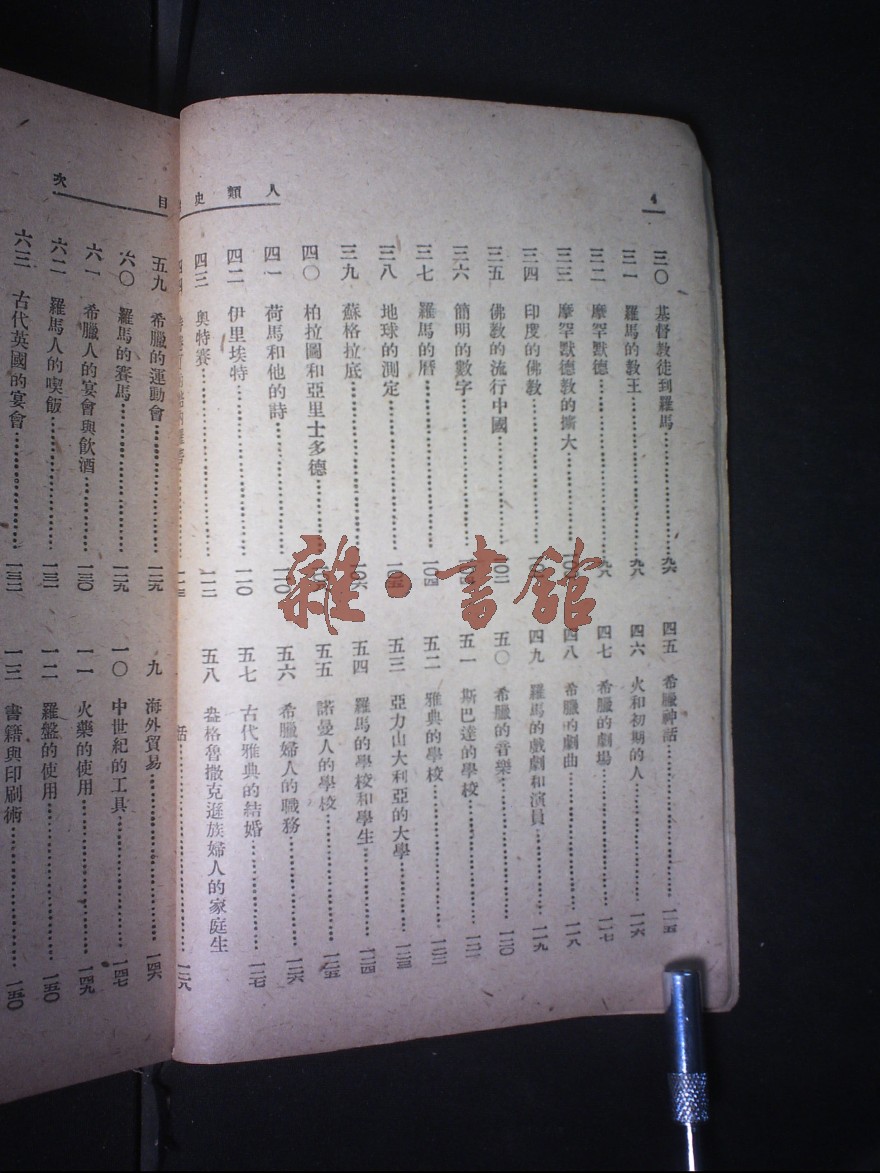 4
人類史
三〇 基督教徒到羅馬……九六
三一 羅馬的教王……九八
三二 摩罕默德……九八
三三 摩罕默德教的擴大……
三四 印度的佛教……
三五 佛教的流行中國……一〇二
三六 簡明的數字……
三七 羅馬的曆……一〇四
三八 地球的測定……一〇五
三九 蘇格拉底……一〇六
四〇 柏拉圖和亞里士多德……
四一 荷馬和他的詩……
四二 伊里埃特……一一〇
四三 奧特賽……一一二
四四 ……一一三
四五 希臘神話……一一五
四六 火和初期的人……一一六
四七 希臘的劇場……一一七
四八 希臘的劇曲……一一八
四九 羅馬的戲劇和演員……一一九
五〇 希臘的音樂……一二〇
五一 斯巴達的學校……一二一
五二 雅典的學校……一二二
五三 亞力山大利亞的大學……一二三
五四 羅馬的學校和學生……一二四
五五 諾曼人的學校……一二五
五六 希臘婦人的職務……一二六
五七 古代雅典的結婚……一二七
五八 盎格魯撒克遜族婦人的家庭生
活……一二八
目次
五九 希臘的運動會……一二九
六〇 羅馬的賽馬……一二九
六一 希臘人的宴會與飲酒……一三〇
六二 羅馬人的喫飯……一三一
六三 古代英國的宴會……一三二
九 海外貿易……一四六
一〇 中世紀的工具……一四七
一一 火藥的使用……一四九
一二 羅盤的使用……一五〇
一三 書籍與印刷術……一五〇
雜·書館